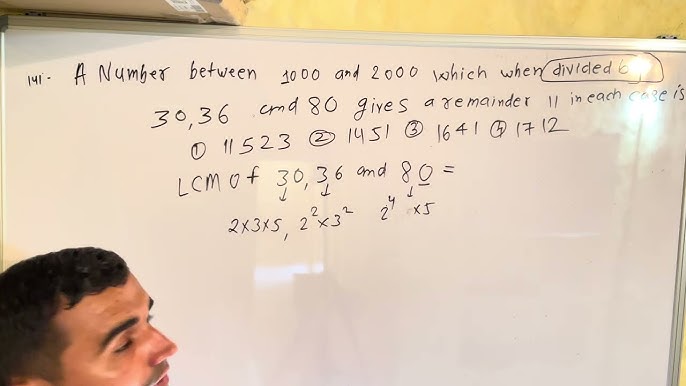 141:- A Number between 1000 and 2000 which when divided by
30,36 and 80 gives a remainder 11 in each case is
① 11523 ② 1451 ③ 1641 ④ 1712
LCM of 30,36 and 80 =
↓ ↓ ↓
2×3×5, 2²×3² 2⁴ ×5